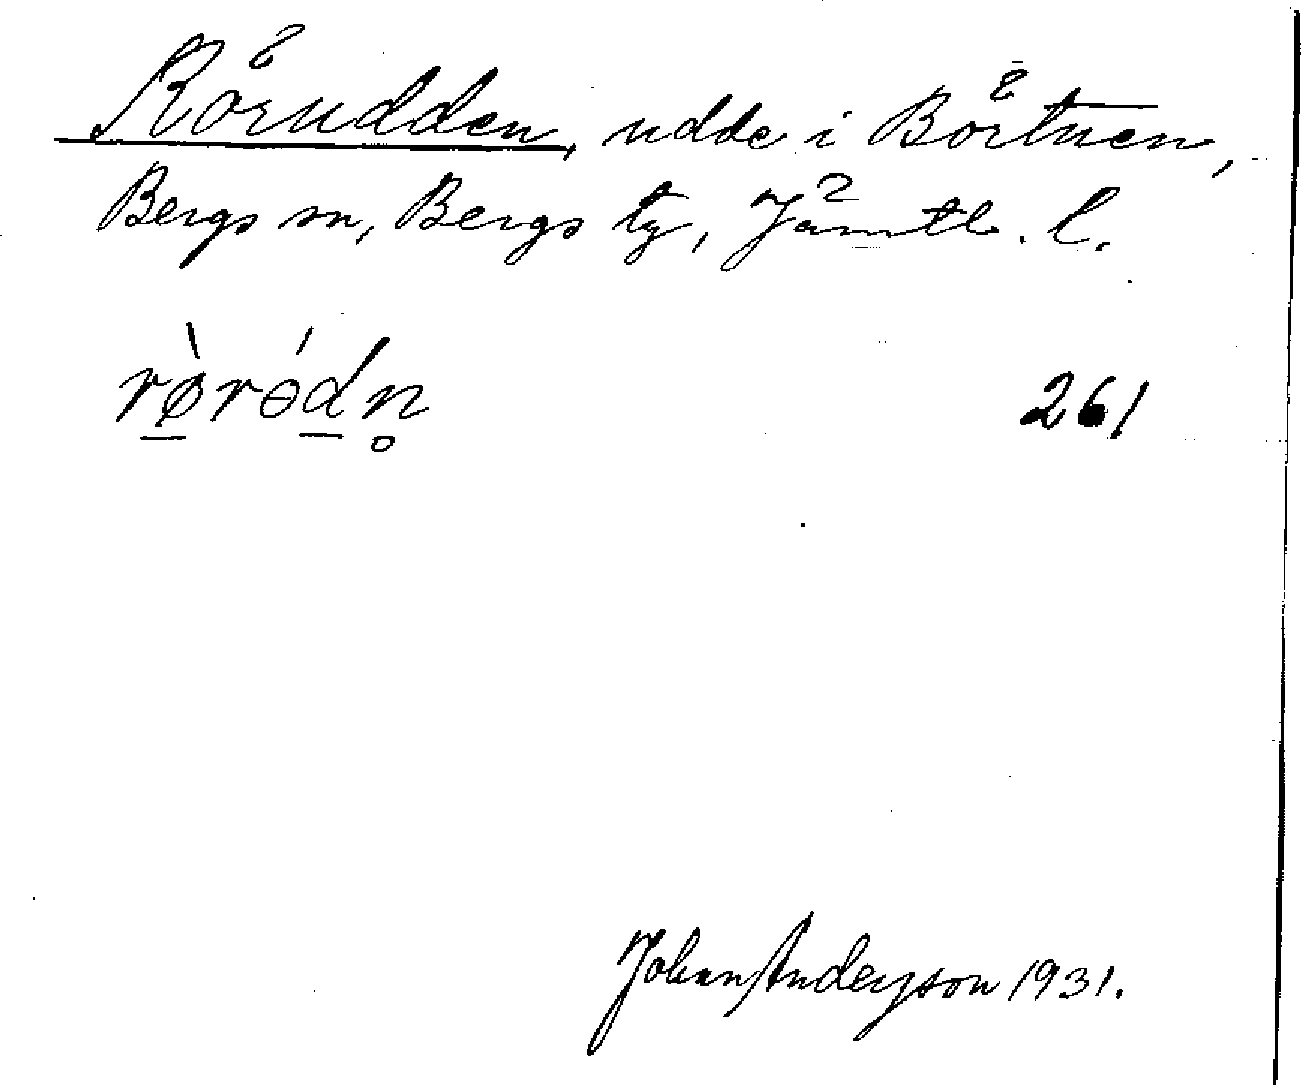 Rörudden, udde i Börtnen,
Bergs sn, Bergs tg, Jämtl. l.
rø̠̀rɵ́d̠n̥ 261
Johan Anderson 1931.